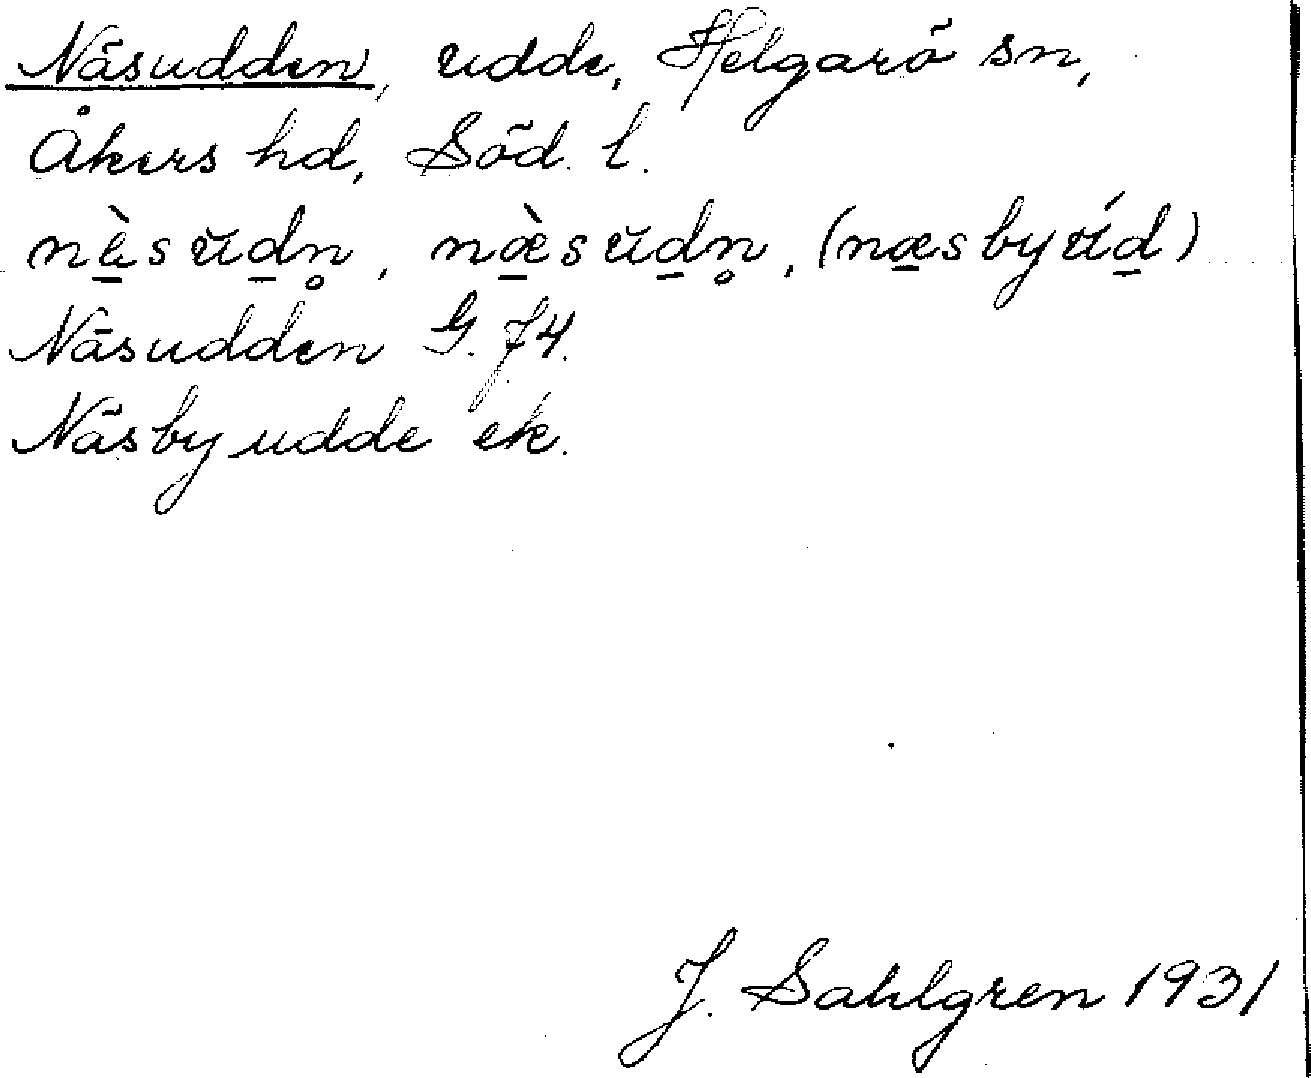 Näsudden, udde, Helgarö sn,
Åkers hd, Söd. l.
nè̱sŭd̠n̥, næ̱̀sŭd̠n̥, (næ̱sbyúd̠)
Näsudden G. 74.
Näsbyudde ek.
J. Sahlgren 1931